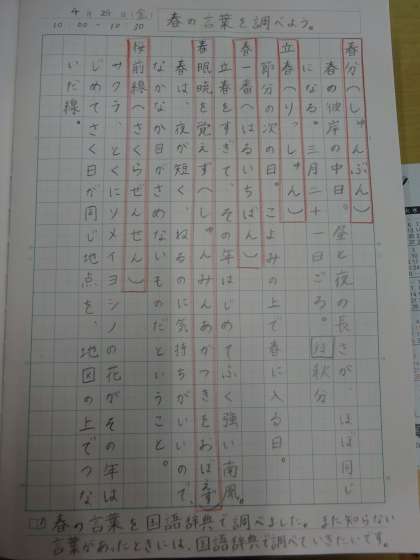 4月24日(金)
10:00～10:30
春の言葉を調べよう。
春分(しゅんぶん)
春の彼岸の中日。昼と夜の長さが、ほぼ同じ
になる。三月二十一日ごろ。 は秋分
立春(りっしゅん)
節分の次の日。こよみの上で春に入る日。
春一番(はるいちばん)
立春をすぎて、その年はじめてふく強い南風。
春眠暁を覚えず(しゅんみんあかつきをおぼえず)
春は、夜が短く、ねるのに気持ちがいいので、
なかなか目がさめないものだということ。
桜前線(さくらぜんせん)
サクラ、とくにソメイヨシノの花がその年は
じめてさく日が同じ地点を、地図の上でつな
いだ線。
春の言葉を国語辞典で調べました。また知らない
言葉があったときには、国語辞典で調べていきたいです。